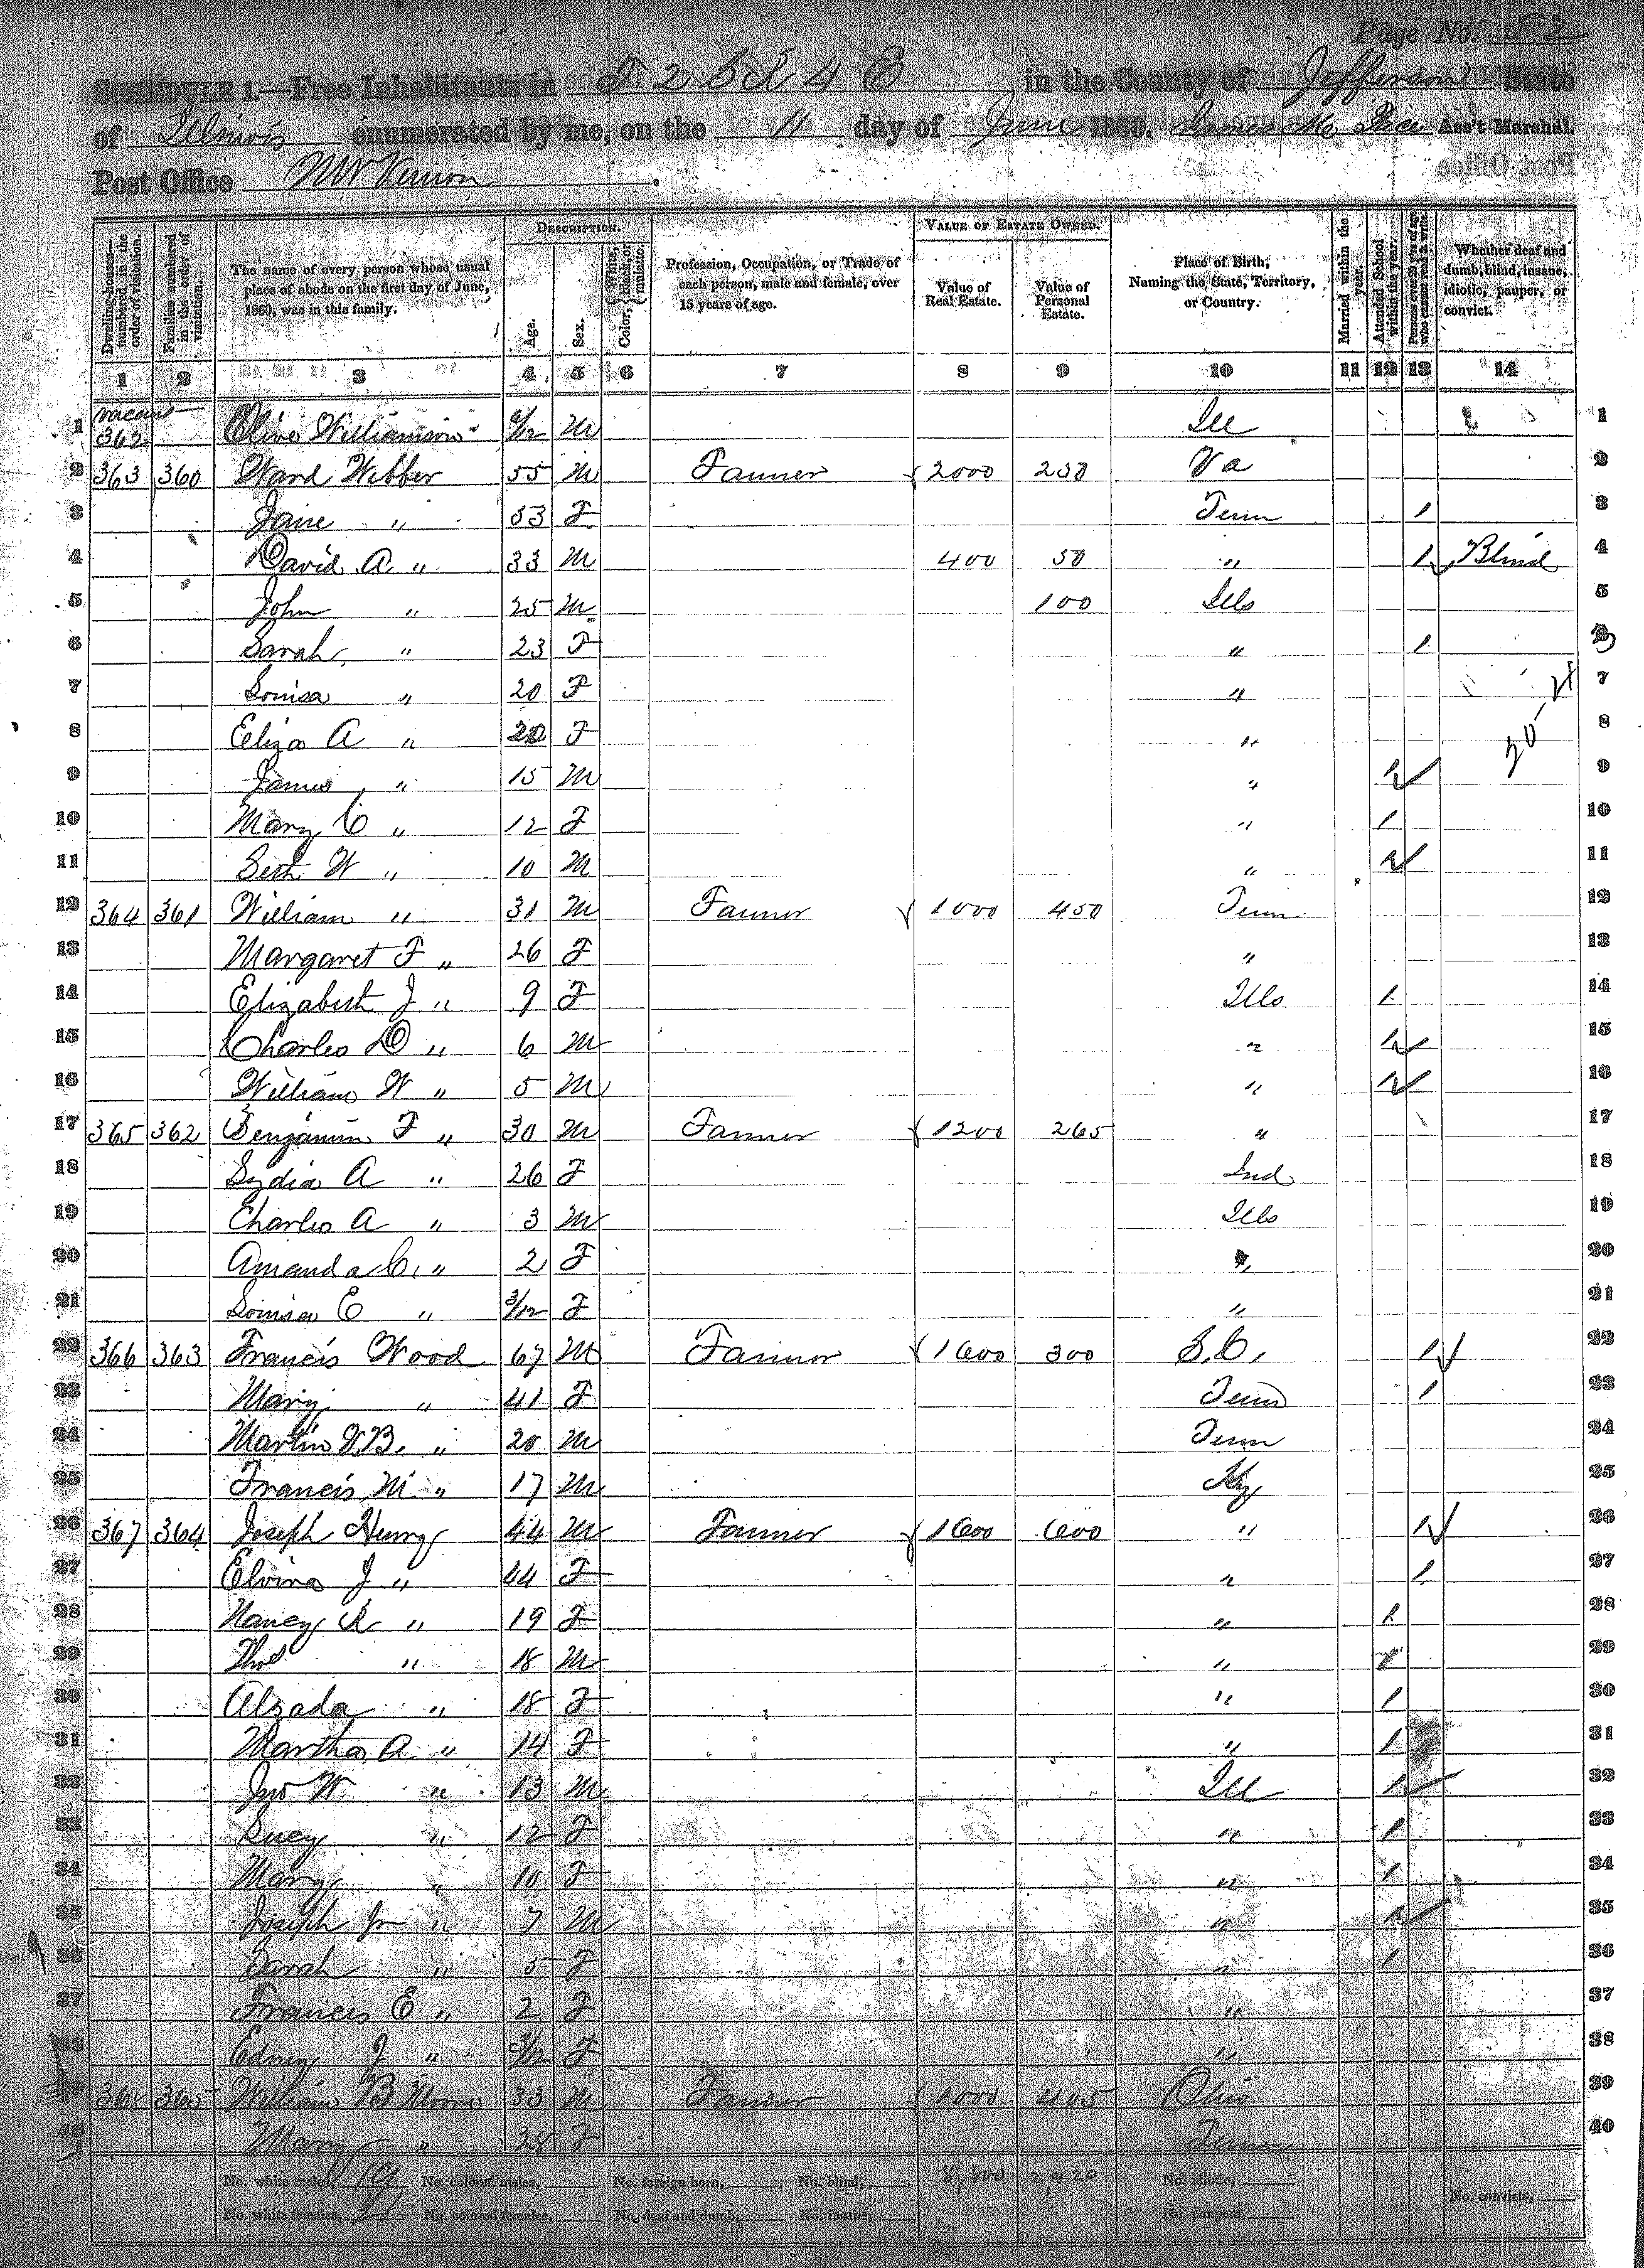 Page No. 52
SCHEDULE 1.—Free Inhabitants in T 2 S R 4 E in the County of Jefferson State
of Illinois enumerated by me, on the 11 day of June 1860. Ass't Marshal.
Post Office Mt Vernon
Dwelling-houses—numbered in the order of visitation.
Families numbered in the order of visitation.
The name of every person whose usual place of abode on the first day of June, 1860, was in this family.
DESCRIPTION.
Age.
Sex.
Color, {White, black, or mulatto.
Profession, Occupation, or Trade of each person, male and female, over 15 years of age.
VALUE OF ESTATE OWNED.
Value of Real Estate.
Value of Personal Estate.
Place of Birth, Naming the State, Territory, or Country.
Married within the year.
Attended School within the year.
Persons over 20 years of age who cannot read & write.
Whether deaf and dumb, blind, insane, idiotic, pauper, or convict.
1 2 3 4 5 6 7 8 9 10 11 12 13 14
1 vacant 362 Williamson /12 M Ill 1
2 363 360 Ward Webber 55 M Farmer 2000 250 Va 2
3 Jane " 53 F Tenn 1 3
4 David A " 33 M 400 50 " 1 Blind 4
5 John " 25 M 100 Ills 5
6 Sarah " 23 F " 1 6
7 Louisa " 20 F " 7
8 Eliza A " F " 8
9 James " 15 M " 1 9
10 Mary C " 12 F " 1 10
11 Seth W " 10 M " 1 11
12 364 361 William " 31 M Farmer 1000 450 Tenn 12
13 Margaret F " 26 F " 13
14 Elizabeth J " 9 F Ills 1 14
15 Charles D " 6 M " 1 15
16 William W " 5 M " 1 16
17 365 362 Benjamin F " 30 M Farmer 1200 265 " 17
18 Lydia A " 26 F Ind 18
19 Charles A " 3 M Ills 19
20 Amanda C. " 2 F " 20
21 Louisa E " 3/12 F " 21
22 366 363 Francis Wood 67 M Farmer 1600 300 S.C. 1 22
23 Mary " 41 F Tenn 1 23
24 Martin V.B. " 20 M Tenn 24
25 Francis M " 17 M Ky 25
26 367 364 Joseph Henry 44 M Farmer 1600 600 " 1 26
27 Elvina J " 44 F " 1 27
28 Nancy " 19 F " 1 28
29 Thos " 18 M " 1 29
30 Alzada " 18 F " 1 30
31 Martha A " 14 F " 1 31
32 Jno W " 13 M Ill 1 32
33 Lucy " 12 F " 1 33
34 Mary " 10 F " 1 34
35 Joseph Jr " 7 M " 1 35
36 Sarah " 5 F " 1 36
37 Francis E " 2 F " 37
38 Edney J " /12 F " 38
39 368 365 William B Moore 33 M Farmer 1000 405 Ohio 39
40 Mary " 28 F Tenn 40
No. white males, 19 No. colored males, No. foreign born, No. blind, 8,800 2,420 No. idiotic,
No. white females, 21 No. colored females, No. deaf and dumb, No. insane, No. paupers, No. convicts,